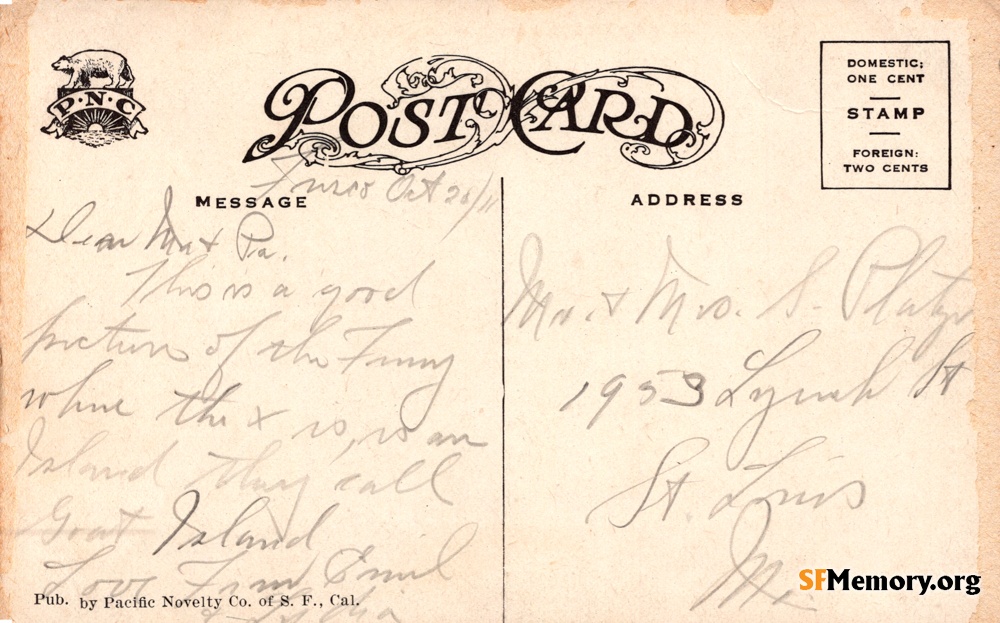 P·N·C
POST CARD
DOMESTIC;
ONE CENT
STAMP
FOREIGN:
TWO CENTS
MESSAGE
Frisco Oct 26/11
Dear Ma & Pa.
This is a good
picture of the Ferry
where the x is, is an
Island they call
Goat Island
Love From Emil
Pub. by Pacific Novelty Co. of S. F., Cal.
ADDRESS
Mr. & Mrs. S. Platz
1953 Lynch St
St. Louis
Mo.
SFMemory.org